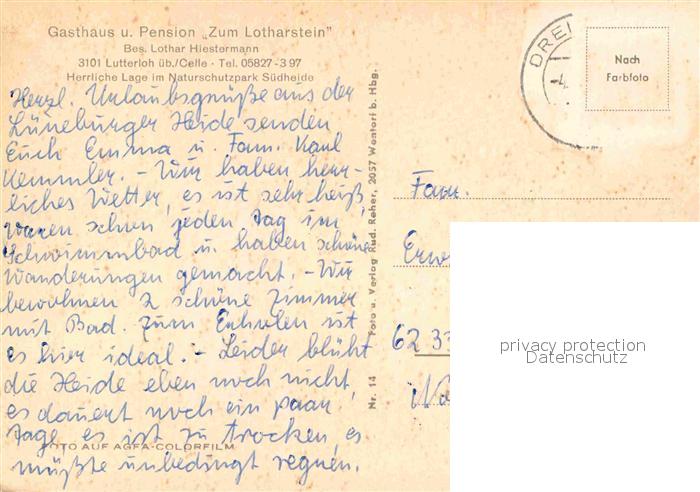 Gasthaus u. Pension „Zum Lotharstein"
Bes. Lothar Hiestermann
3101 Lutterloh üb./Celle · Tel. 05827-3 97
Herrliche Lage im Naturschutzpark Südheide
Herzl. Urlaubsgrüße aus der
Lüneburger Heide senden
Euch Emma u. Fam. Karl
Kemmler. - Wir haben herr-
liches Wetter, es ist sehr heiß,
waren schon jeden Tag im
Schwimmbad u. haben schöne
Wanderungen gemacht. - Wir
bewohnen 2 schöne Zimmer
mit Bad. Zum Erholen ist
es hier ideal. - Leider blüht
die Heide eben noch nicht,
es dauert noch ein paar
Tage, es ist zu trocken, es
müßte unbedingt regnen.
FOTO AUF AGFA-COLORFILM
Nr. 14 Foto u. Verlag Rud. Reher, 2057 Wentorf b. Hbg.
DREI
-4.
Nach
Farbfoto
Fam.
Erw
62 33
privacy protection
Datenschutz